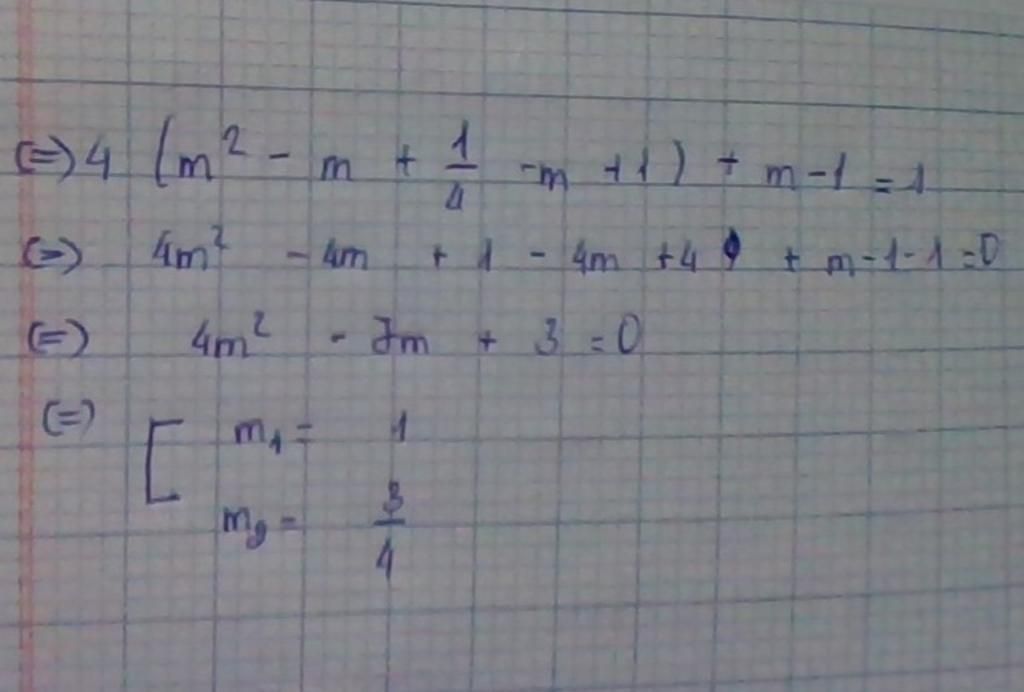 (=) 4 (m² - m + 1/4 - m + 1) + m - 1 = 1
(=) 4m² - 4m + 1 - 4m + 4 + m - 1 - 1 = 0
(=) 4m² - 7m + 3 = 0
(=) [ m₁ = 1
m₂ = 3/4